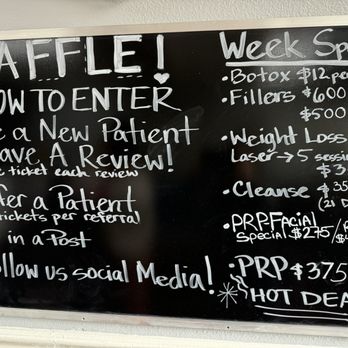 AFFLE!
OW TO ENTER
e a New Patient
ave A Review!
e ticket each review
fer a Patient
tickets per referral
in a Post
ollow us social Media!
Week Sp
• Botox $12 pe
• Fillers $600
$500
• Weight Loss
Laser → 5 sessi
$3
• Cleanse $35
(21 D
• PRP Facial
Special $275/
• PRP $375
HOT DEA